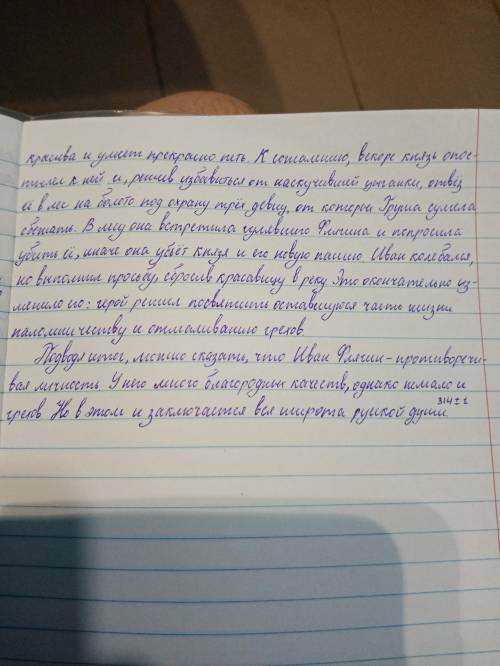 красива и умеет прекрасно петь. К сожалению, вскоре князь опос-
тылел к ней и, решив избавиться от наскучившей цыганки, отвёз
её в лес на болото под охрану трёх девиц, от которой Груша сумела
сбежать. В лесу она встретила гулявшего Флягина и попросила
убить её, иначе она убьёт князя и его новую пассию. Иван колебался,
но выполнил просьбу, сбросив красавицу в реку. Это окончательно из-
менило его: герой решил посвятить оставшуюся часть жизни
паломничеству и отмаливанию грехов.
Подводя итог, можно сказать, что Иван Флягин - противоречи-
вая личность. У него много благородных качеств, однако немало и
грехов. Но в этом и заключается вся широта русской души.
314±1